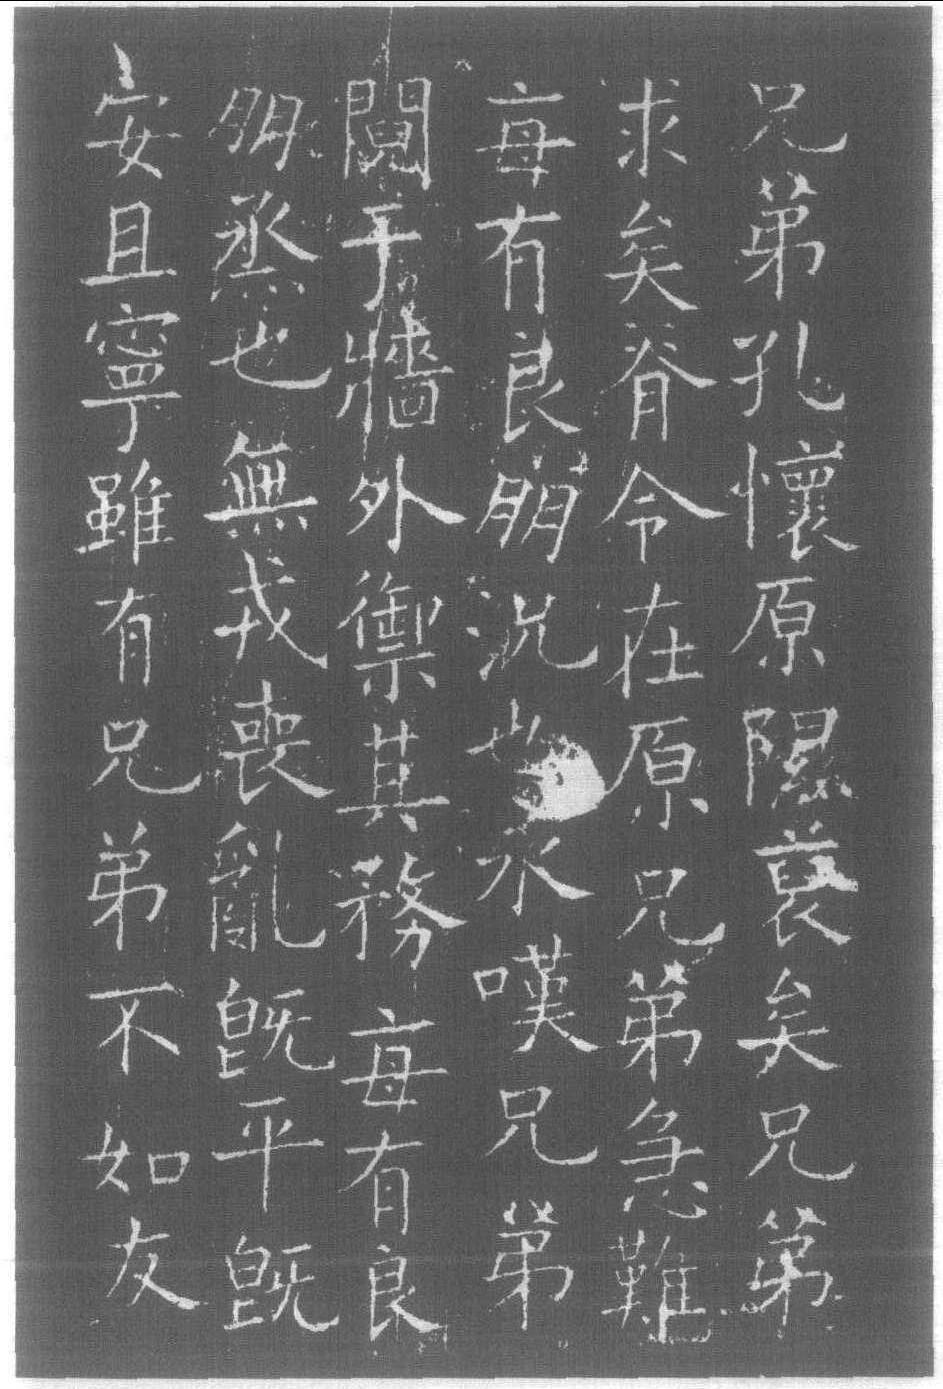 兄弟孔懷原隰裒矣兄弟
求矣脊令在原兄弟急難
每有良朋況也永嘆兄弟
鬩于牆外禦其務每有良
朋烝也無戎喪亂既平既
安且寧雖有兄弟不如友